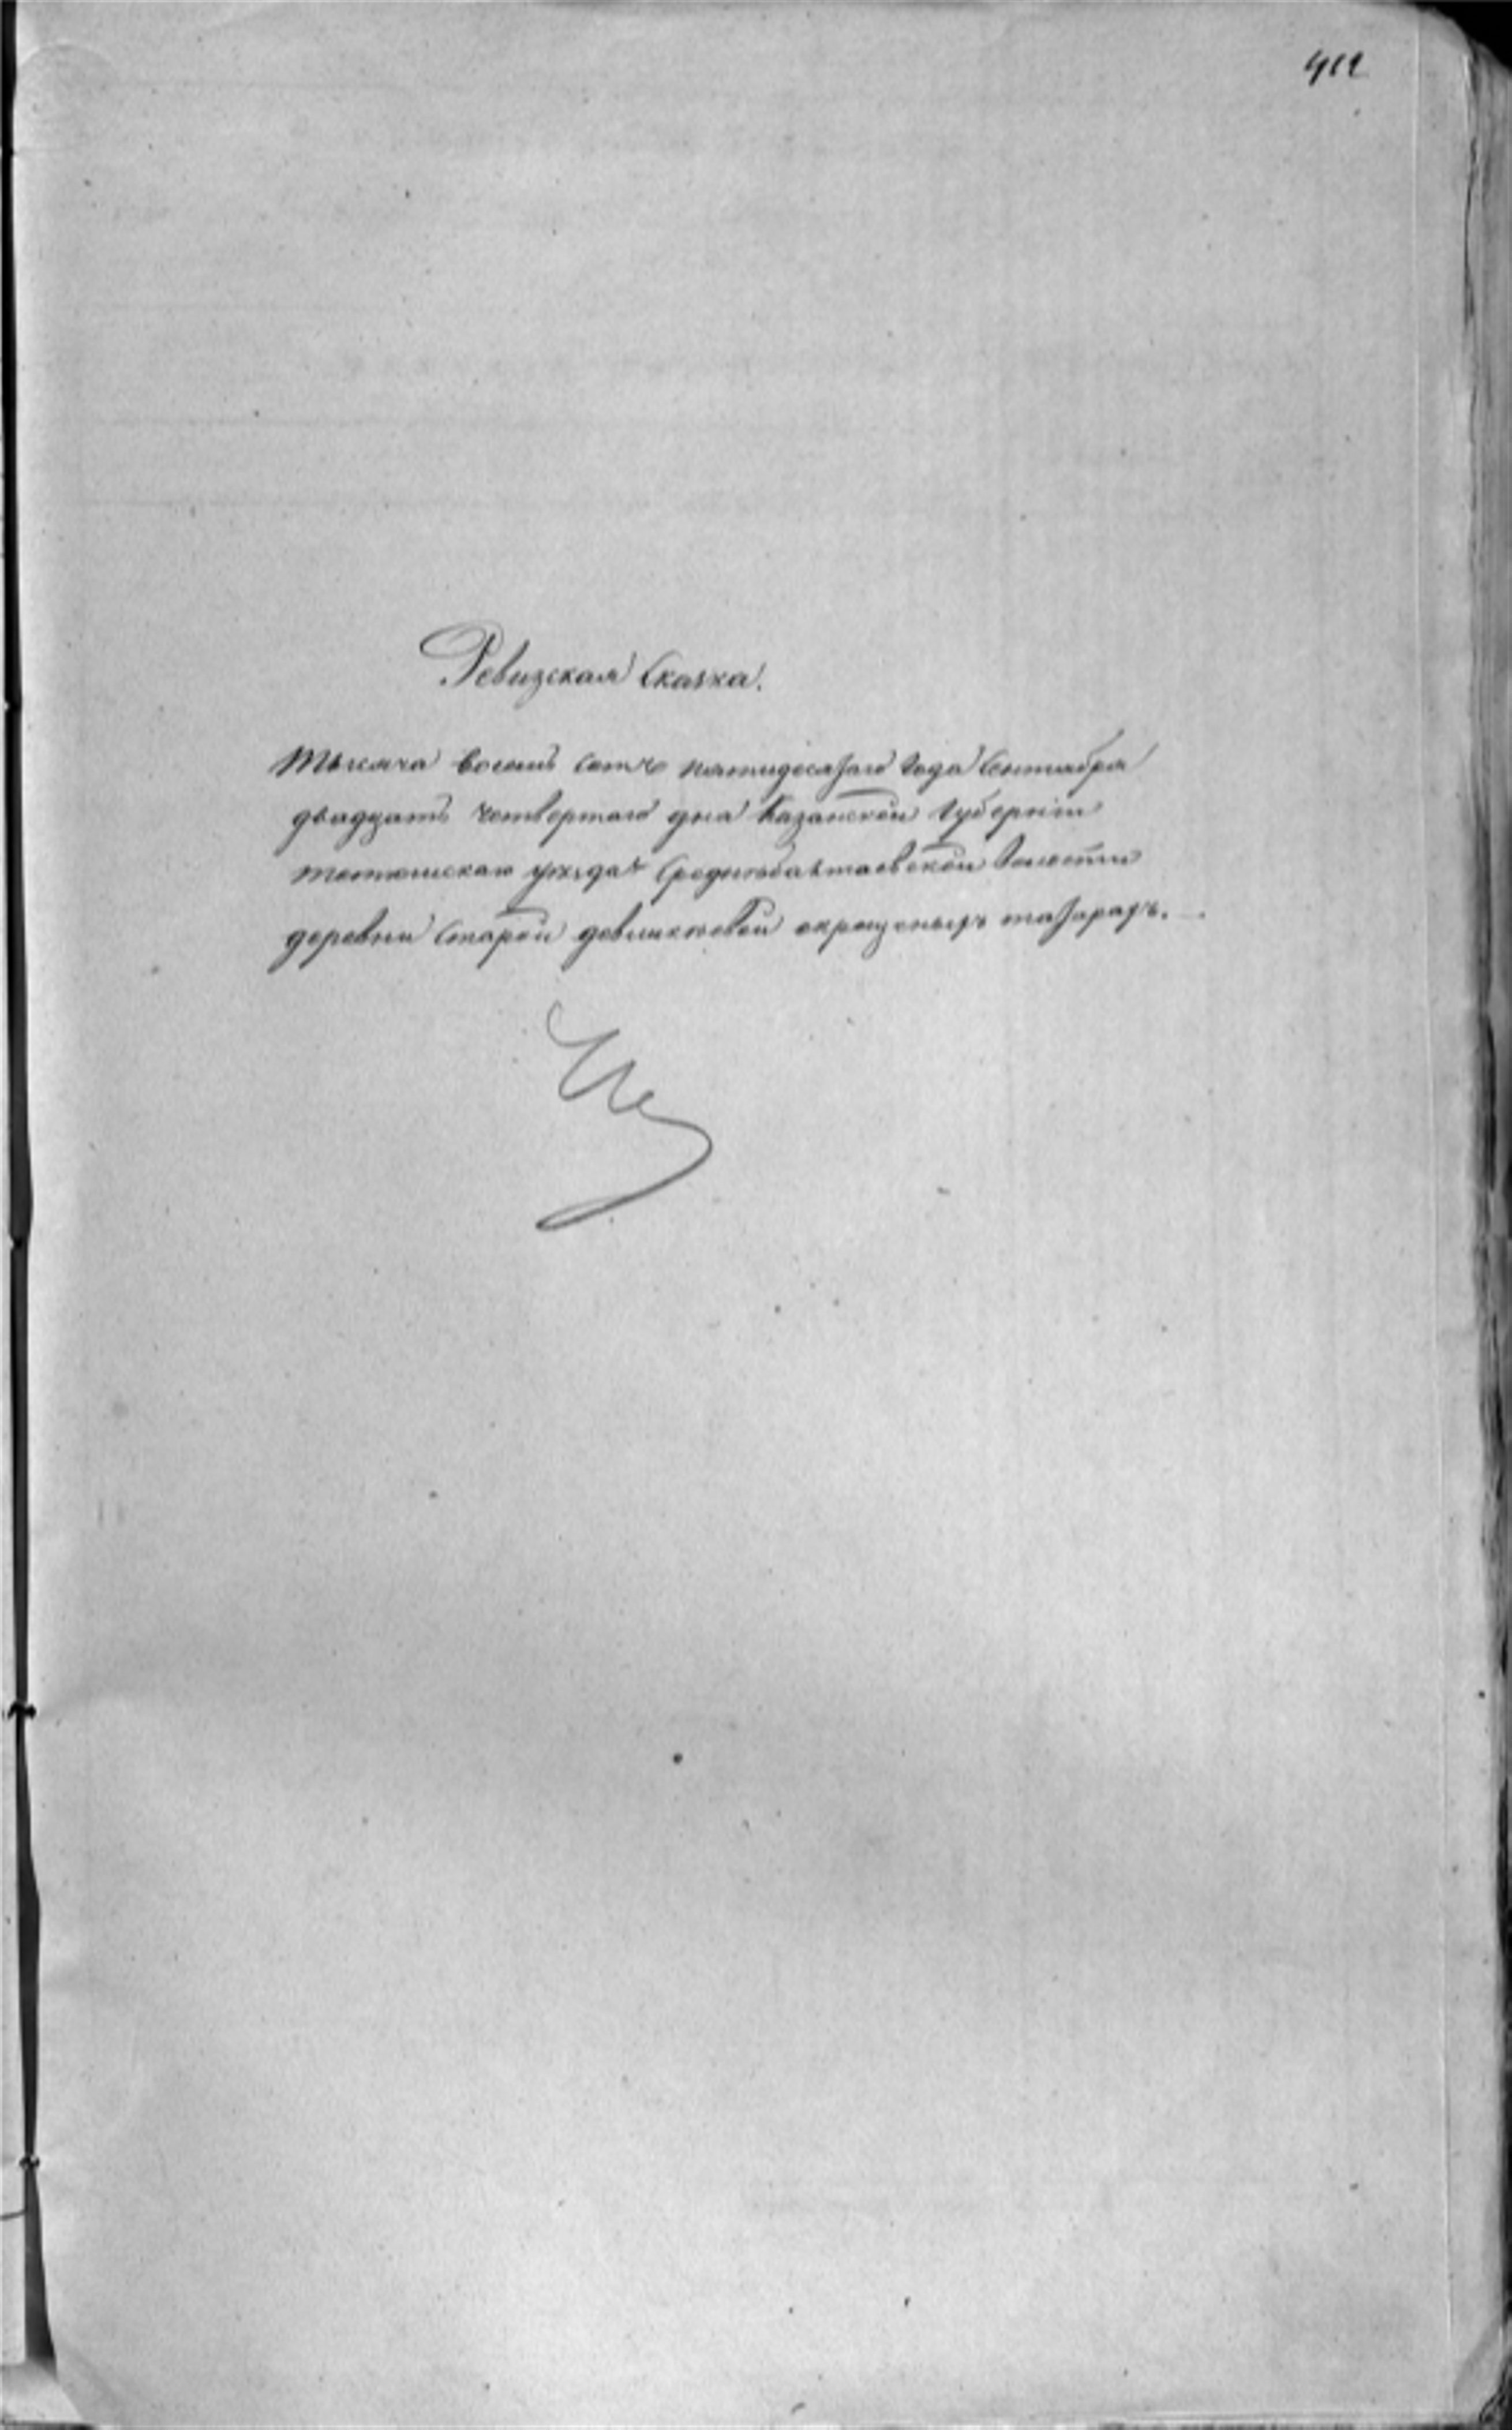 412
Ревизская Сказка.
Тысяча восемь сотъ пятидесятаго года Сентября
двадцать четвертаго дня Казанской губерніи
тетюшскаго уѣзда Среднебалтаевской волости
деревни Старой окрещеныхъ татарахъ.